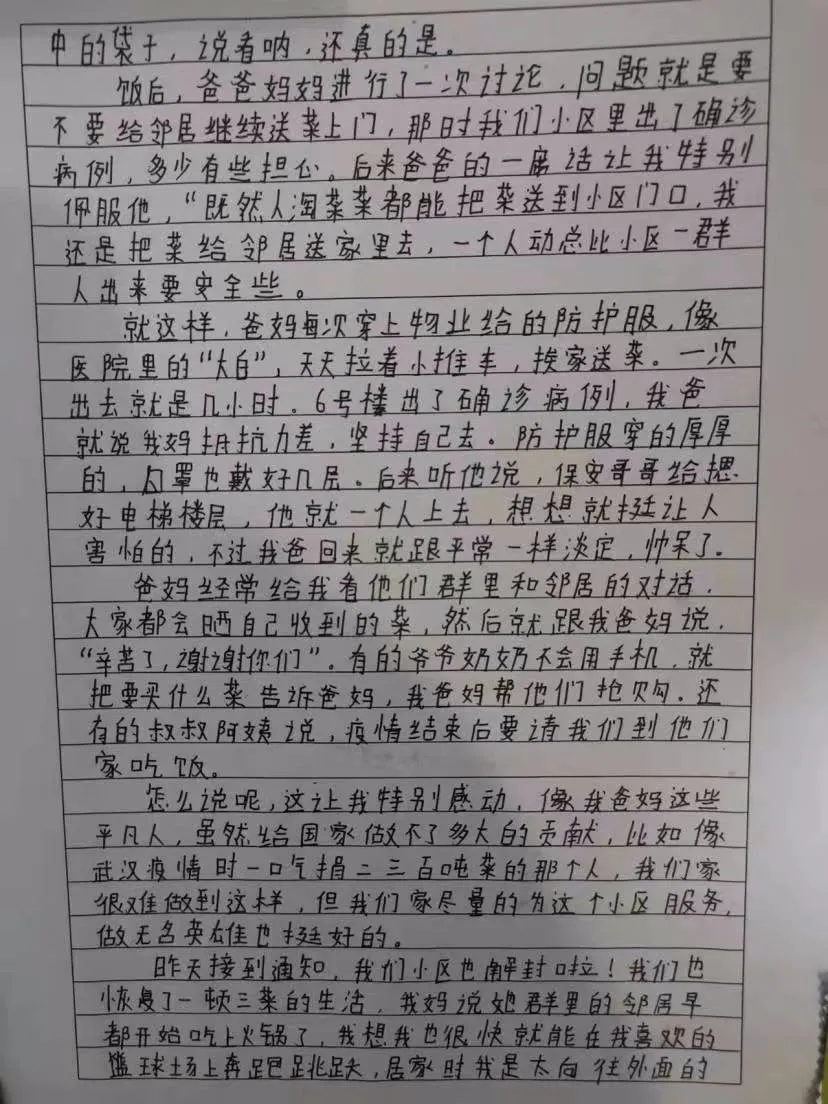 中的袋子，说看呐，还真的是。
饭后，爸爸妈妈进行了一次讨论，问题就是要
不要给邻居继续送菜上门，那时我们小区里出了确诊
病例，多少有些担心。后来爸爸的一席话让我特别
佩服他，“既然人淘菜菜都能把菜送到小区门口，我
还是把菜给邻居送家里去，一个人动总比小区一群
人出来要安全些。
就这样，爸妈每次穿上物业给的防护服，像
医院里的“大白”，天天拉着小推车，挨家送菜。一次
出去就是几小时。6号楼出了确诊病例，我爸
就说我妈抵抗力差，坚持自己去。防护服穿的厚厚
的，口罩也戴好几层。后来听他说，保安哥哥给摁
好电梯楼层，他就一个人上去，想想就挺让人
害怕的，不过我爸回来就跟平常一样淡定，帅呆了。
爸妈经常给我看他们群里和邻居的对话，
大家都会晒自己收到的菜，然后就跟我爸妈说，
“辛苦了，谢谢你们”。有的爷爷奶奶不会用手机，就
把要买什么菜告诉爸妈，我爸妈帮他们抢购。还
有的叔叔阿姨说，疫情结束后要请我们到他们
家吃饭。
怎么说呢，这让我特别感动，像我爸妈这些
平凡人，虽然给国家做不了多大的贡献，比如像
武汉疫情时一口气捐二三百吨菜的那个人，我们家
很难做到这样，但我们家尽量的为这个小区服务，
做无名英雄也挺好的。
昨天接到通知，我们小区也解封啦！我们也
恢复了一顿三菜的生活，我妈说她群里的邻居早
都开始吃上火锅了，我想我也很快就能在我喜欢的
篮球场上奔跑跳跃，居家时我是太向往外面的